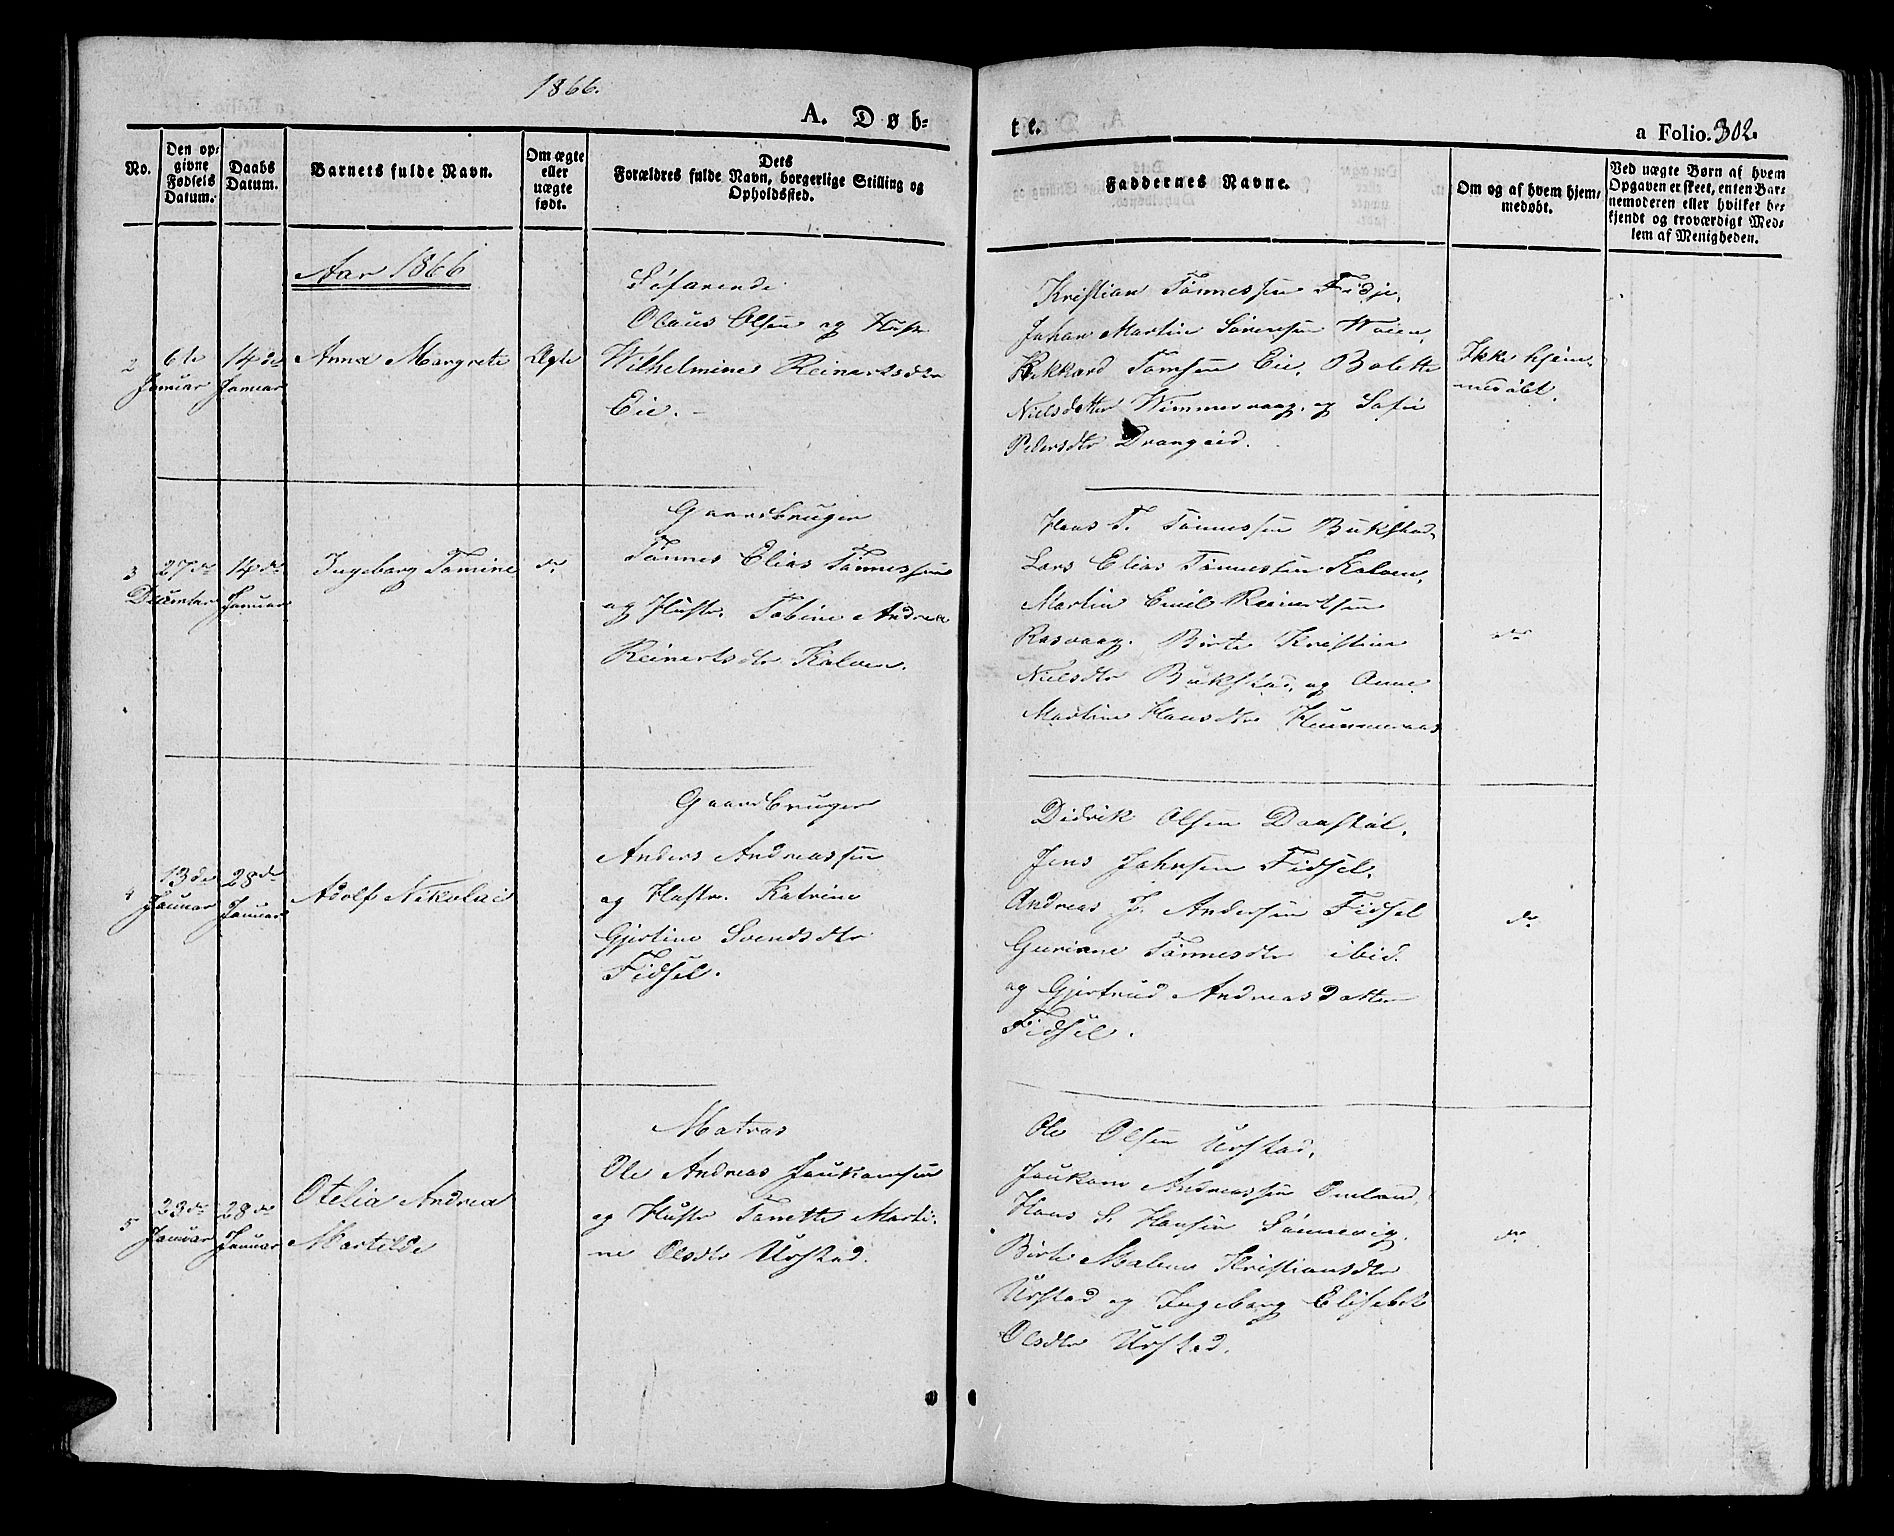 1866.
A. Døb-
te.
a Folio. 302.
No.
Den op-
givne
Fødsels
Datum.
Daabs
Datum.
Barnets fulde Navn.
Om ægte
eller
uægte
født.
Dets
Forældres fulde Navn, borgerlige Stilling og
Opholdssted.
Faddernes Navne.
Om og af hvem hjem-
medøbt.
Ved uægte Børn af hvem
Opgaven er skeet, enten Bar-
nemoderen eller hvilket be-
kjendt og troværdigt Med-
lem af Menigheden.
Aar 1866
2
6te
Januar
14de
Januar
Anna Margrete
Ægte
Søfarende
Olaus Olsen og Hustr
Wilhelmine Reinertsdtr
Eie.
Kristian Tønnessen Fidje,
Johan Martin Sørensen Woien,
Rekkard Tomsen Eie, Bolette
Nielsdatter Wimmervaag, og Sofie
Pedersdtr Drangeid.
Ikke hjem-
medøbt.
3
27de
December
14de
Januar
Ingeborg Tomine
do
Gaardbruger
Tønnes Elias Tønnessen
og Hustr. Tobine Andrea
Reinertsdtr Kalven.
Hans T. Tønnessen Bukstad,
Lars Elias Tønnessen Kalven,
Martin Emil Reinertsen
Rasvaag. Birte Kristine
Nielsdtr Bukstad, og Anne
Martine Hansdtr Hummeraas
do
4
13de
Januar
28de
Januar
Adolf Nikolai
Gaardbruger
Anders Andreassen
og Hustr. Katrine
Gjertine Svendsdtr
Fidsel.
Didrik Olsen Daastøl,
Jens Johnsen Fidsel,
Andreas J. Andersen Fidsel
Guriane Tønnesdtr ibid.
og Gjertrud Andreasdatter
Fidsel.
do
5
23de
Januar
28de
Januar
Otelia Andrea
Martilde
Matros
Ole Andreas Joukomsen
og Hustr Tonette Marti-
ne Olsdtr Urstad.
Ole Olsen Urstad,
Joukom Andreassen Omland,
Hans S. Hansen Sønnevig,
Birte Malene Kristiansdtr
Urstad og Ingeborg Elisabet
Olsdtr Urstad.
do